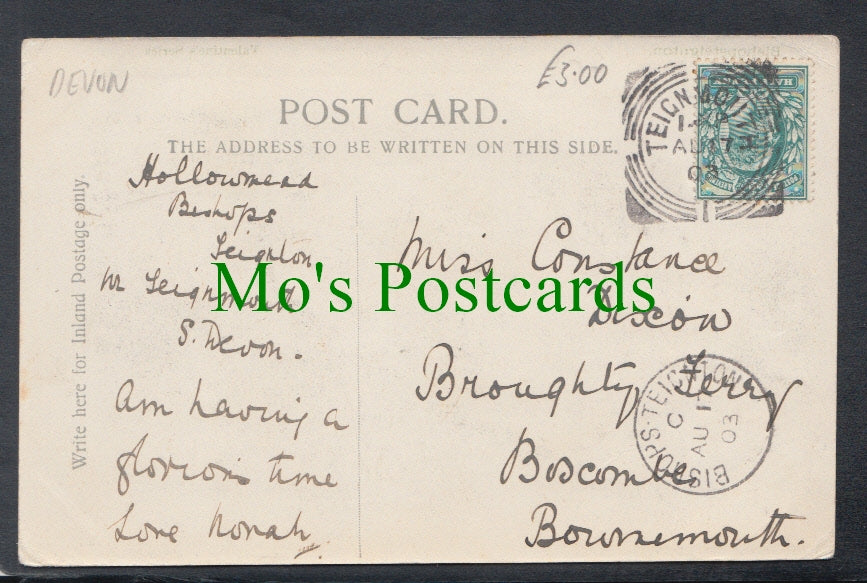 Bishopsteignton.
Valentine's Series
DEVON
£3.00
POST CARD.
THE ADDRESS TO BE WRITTEN ON THIS SIDE.
Write here for Inland Postage only.
TEIGNMOUTH
AU 17
03
Hollowmead
Bishops
Teighton
Nr Teignmouth
S. Devon.
Am having a
glorious time
Love Norah
Miss Constance
Dixon
Broughty Ferry
Boscombe
Bournemouth.
BISHOPS-TEIGNTON
C
AU 1
03
Mo's Postcards